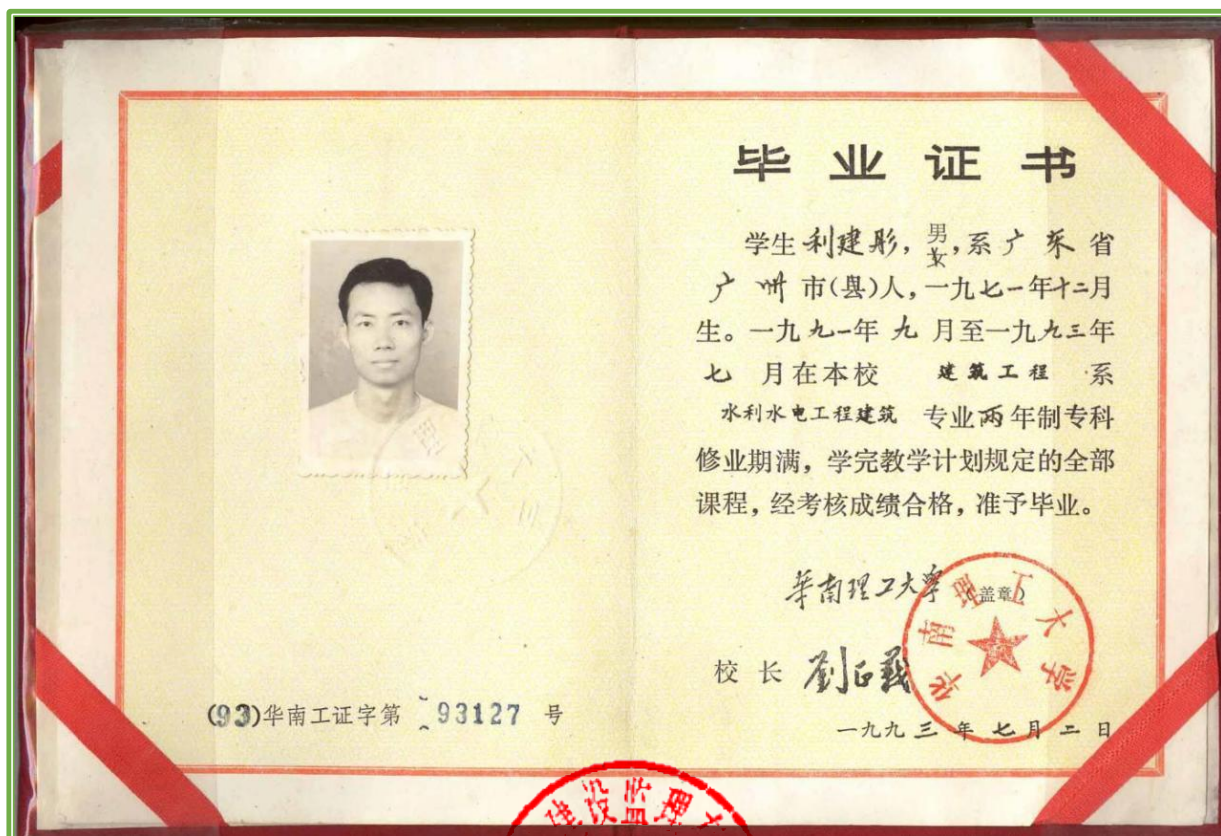 毕业证书
学生利建彤,男女,系广东省
广州市(县)人,一九七一年十二月
生。一九九一年九月至一九九三年
七月在本校 建筑工程 系
水利水电工程建筑 专业两年制专科
修业期满,学完教学计划规定的全部
课程,经考核成绩合格,准予毕业。
华南理工大学(盖章)
华南理工大学
校长 劉正義
一九九三年七月二日
(93)华南工证字第 93127 号
建设监理